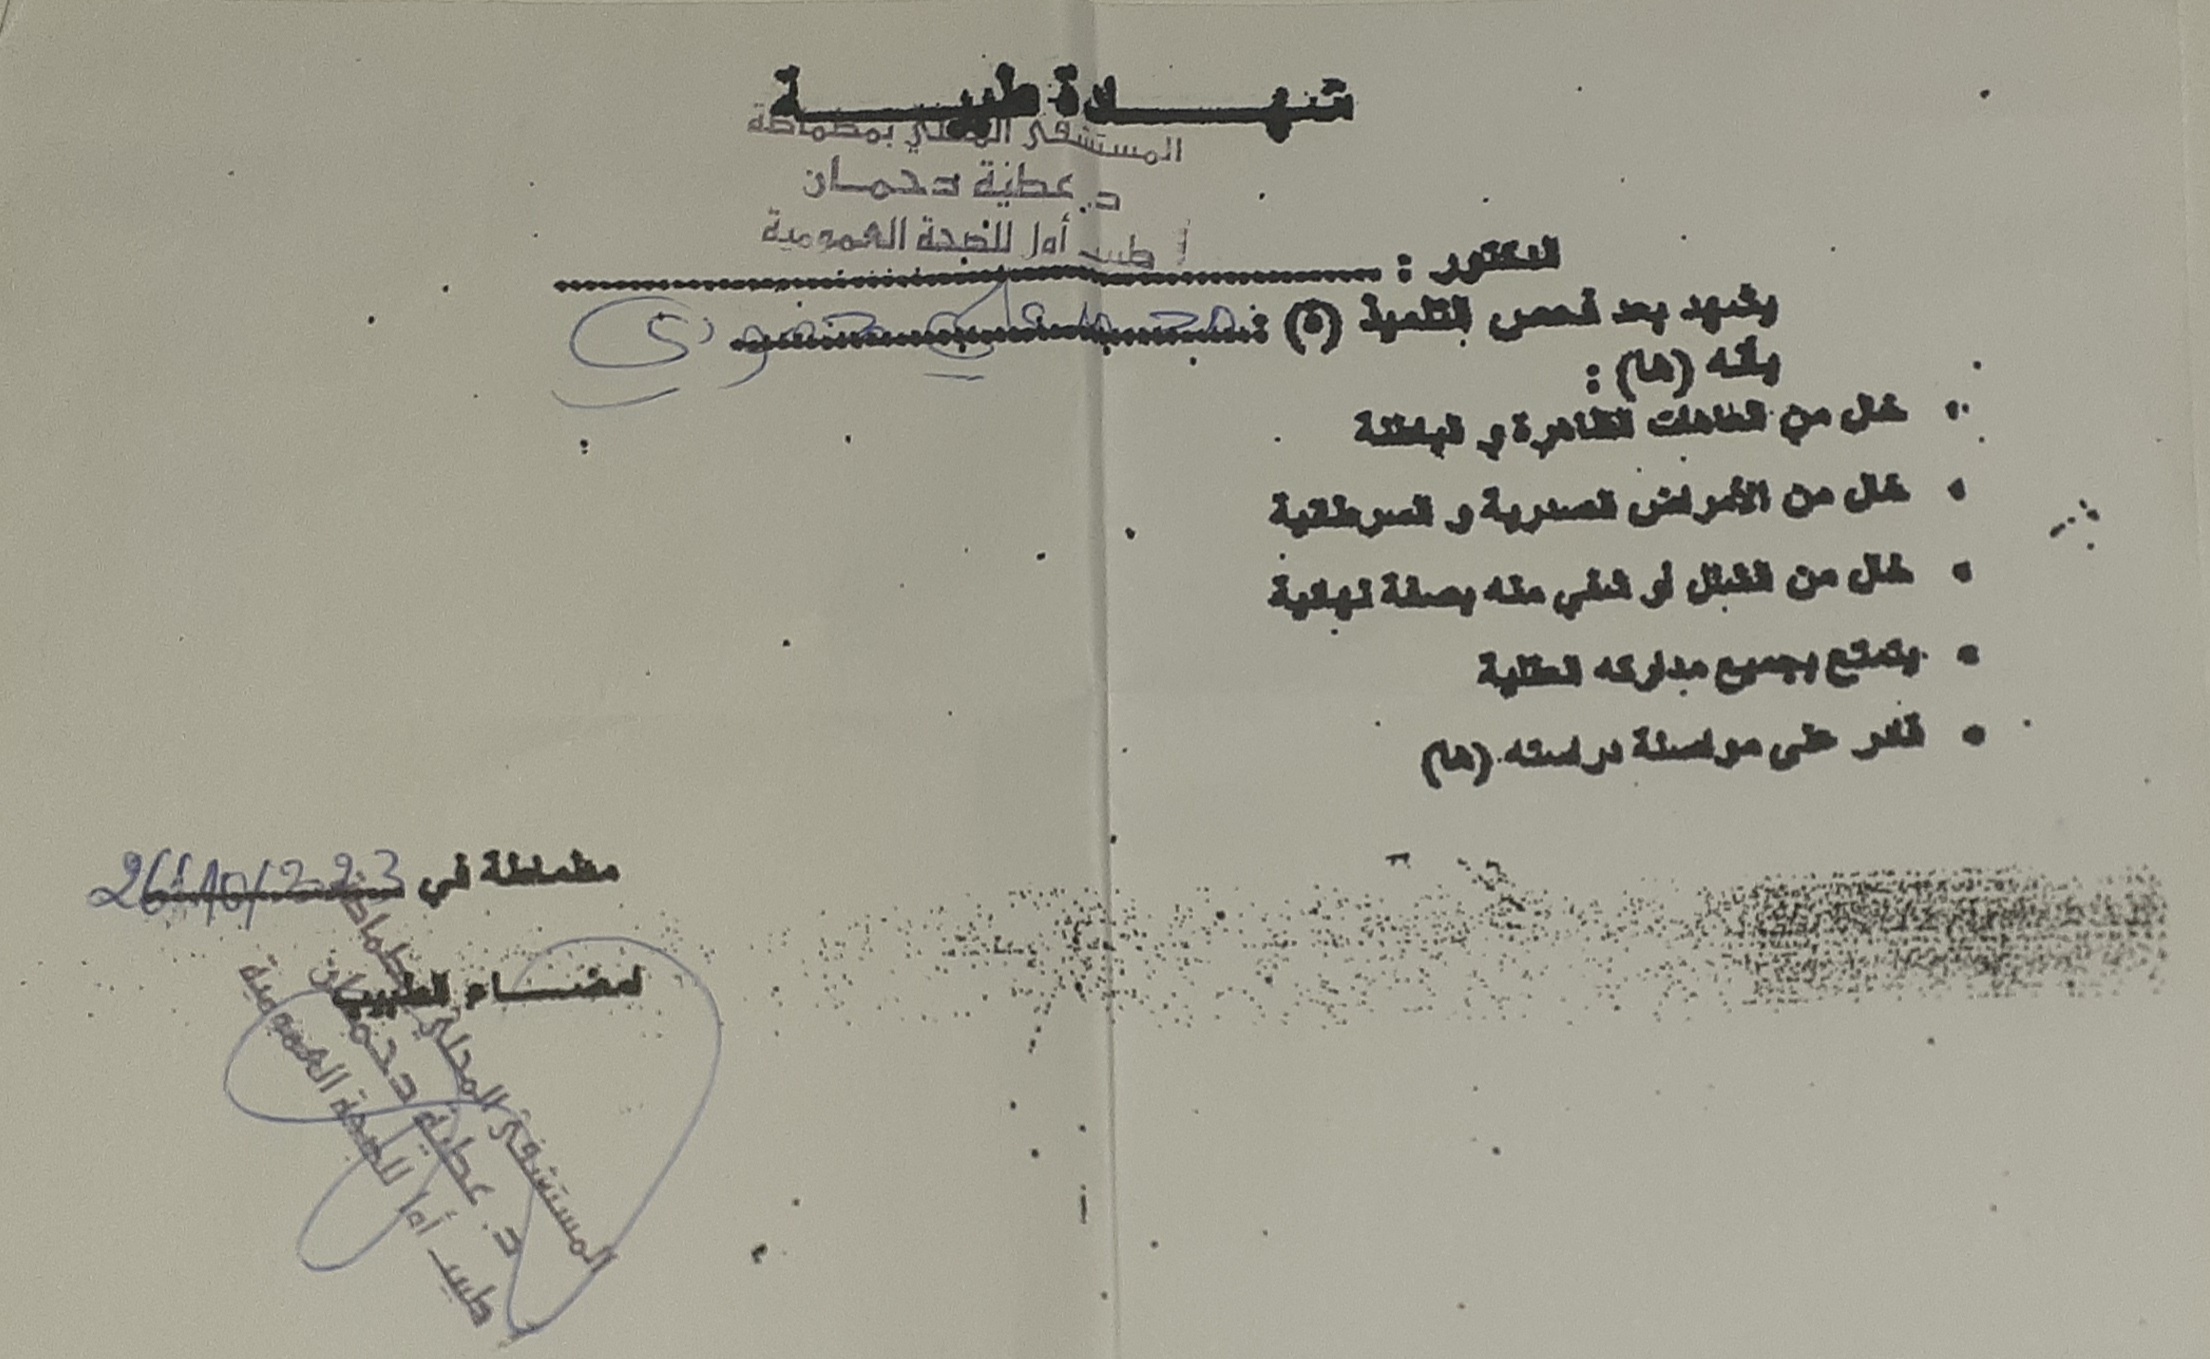 شهـــادة طبيـــــة
المستشفى المحلي بمطماطة
د. عطية دحمـان
طبيب أول للصحة العمومية
الدكتور : ........................
يشهد بعد فحص التلميذ (ة) :
بأنه (ها) :
• خال من العاهات الظاهرة و الباطنة
• خال من الأمراض الصدرية و السرطانية
• خال من السل أو شفي منه بصفة نهائية
• يتمتع بجميع مداركه العقلية
• قادر على مواصلة دراسته (ها)
مطماطة في 26/10/2023
امضـــاء الطبيب
المستشفى المحلي بمطماطة
د. عطية دحمـان
طبيب أول للصحة العمومية